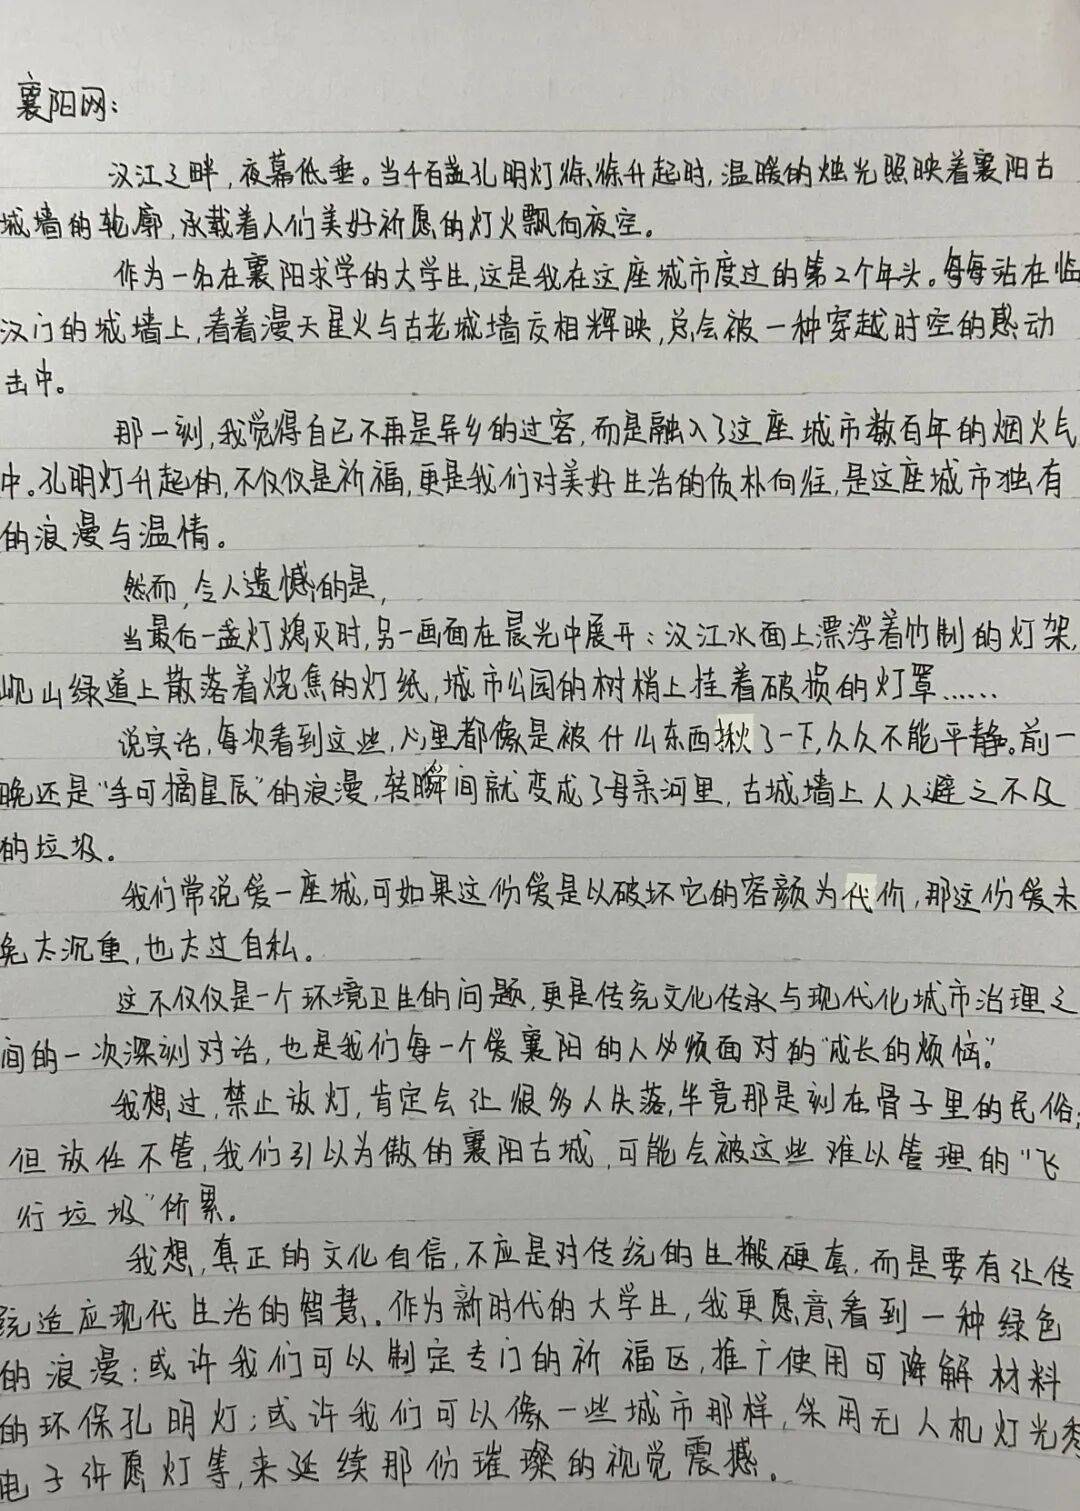 襄阳网：
汉江之畔，夜幕低垂。当千百盏孔明灯徐徐升起时，温暖的烛光照映着襄阳古
城墙的轮廓，承载着人们美好祈愿的灯火飘向夜空。
作为一名在襄阳求学的大学生，这是我在这座城市度过的第2个年头。每每站在临
汉门的城墙上，看着漫天星火与古老城墙交相辉映，总会被一种穿越时空的感动
击中。
那一刻，我觉得自己不再是异乡的过客，而是融入了这座城市数百年的烟火气
中。孔明灯升起的，不仅仅是祈福，更是我们对美好生活的质朴向往，是这座城市独有
的浪漫与温情。
然而，令人遗憾的是，
当最后一盏灯熄灭时，另一画面在晨光中展开：汉江水面上漂浮着竹制的灯架，
岘山绿道上散落着烧焦的灯纸，城市公园的树梢上挂着破损的灯罩……
说实话，每次看到这些，心里都像是被什么东西揪了一下，久久不能平静。前一
晚还是“手可摘星辰”的浪漫，转瞬间就变成了母亲河里，古城墙上人人避之不及
的垃圾。
我们常说爱一座城，可如果这份爱是以破坏它的容颜为代价，那这份爱未
免太沉重，也太过自私。
这不仅仅是一个环境卫生的问题，更是传统文化传承与现代化城市治理之
间的一次深刻对话，也是我们每一个爱襄阳的人必须面对的“成长的烦恼”。
我想过，禁止放灯，肯定会让很多人失落，毕竟那是刻在骨子里的民俗；
但放任不管，我们引以为傲的襄阳古城，可能会被这些难以管理的“飞
行垃圾”所累。
我想，真正的文化自信，不应是对传统的生搬硬套，而是要有让传
统适应现代生活的智慧。作为新时代的大学生，我更愿意看到一种绿色
的浪漫：或许我们可以制定专门的祈福区，推广使用可降解材料
的环保孔明灯；或许我们可以像一些城市那样，采用无人机灯光秀
电子许愿灯等，来延续那份璀璨的视觉震撼。